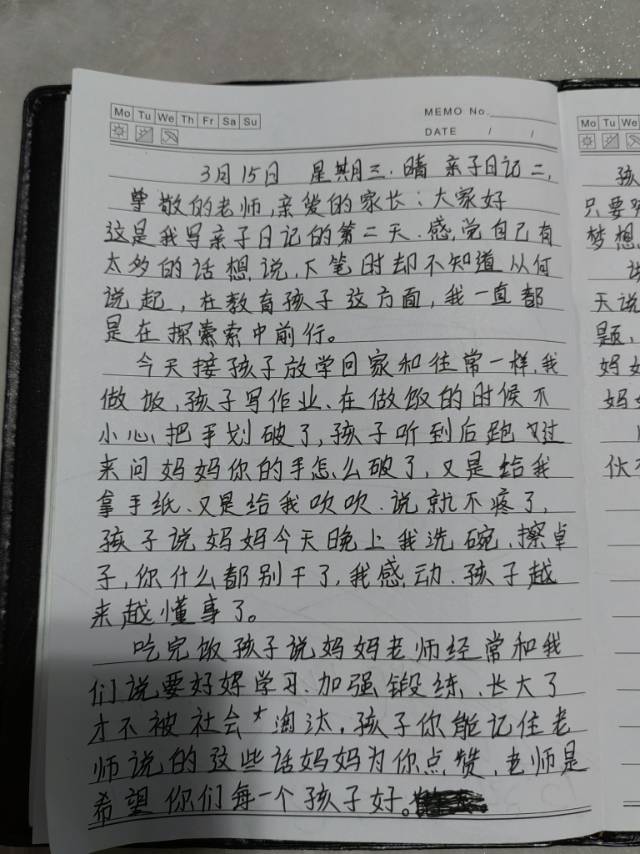 Mo Tu We Th Fr Sa Su
MEMO No.
DATE / /
3月15日 星期三.晴 亲子日记二,
尊敬的老师,亲爱的家长:大家好
这是我写亲子日记的第二天.感觉自己有
太多的话想说,下笔时却不知道从何
说起,在教育孩子这方面,我一直都
是在探索索中前行。
今天接孩子放学回家和往常一样,我
做饭,孩子写作业、在做饭的时候不
小心把手划破了,孩子听到后跑过
来问妈妈你的手怎么破了,又是给我
拿手纸、又是给我吹吹.说就不疼了,
孩子说妈妈今天晚上我洗碗、擦卓
子,你什么都别干了,我感动.孩子越
来越懂事了。
吃完饭孩子说妈妈老师经常和我
们说要好好学习.加强锻练、长大了
才不被社会淘汰,孩子你能记住老
师说的这些话妈妈为你点赞,老师是
希望你们每一个孩子好。
Mo Tu We
孩
只要
梦想
天说
题,
妈
妈
伙